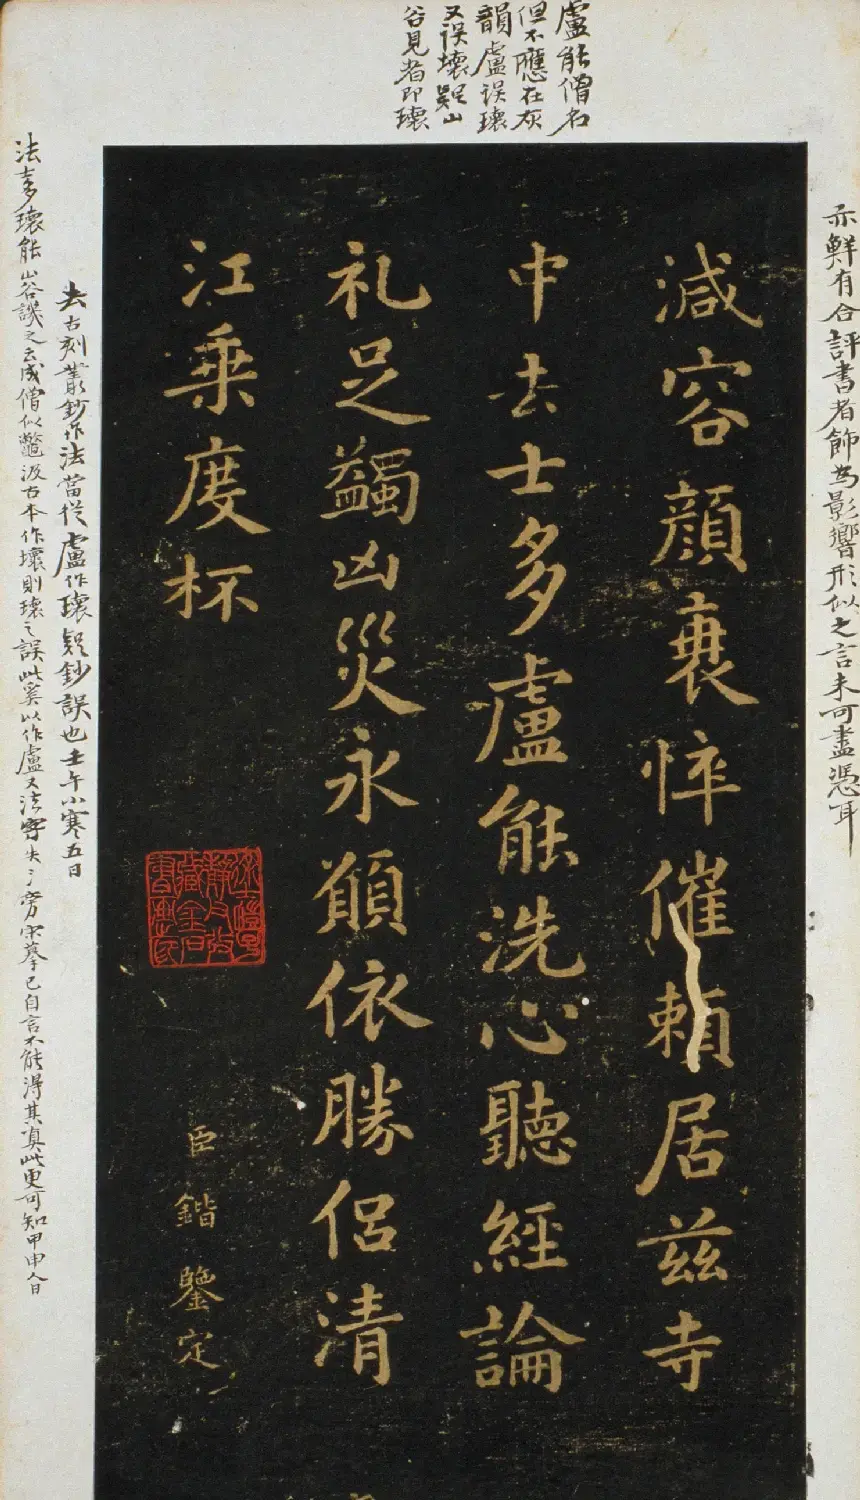 亦鮮有合評書者飾為影響形似之言未可盡憑耳
盧能僧名
但不應在灰
韻盧误瓌
又误壞疑山
谷見者即瓌
減容顔衰悴催賴居茲寺
中去士多盧能洗心聽經論
礼足蠲凶災永願依勝侣清
江乗度杯
臣鍇鑒定
去古刻叢鈔作法當從盧作瓌疑鈔誤也壬午小寒五日
法多瓌能山谷譏之云咸僧似鼈汲古本作壞則瓌之誤此奚以作盧又法字失氵旁宋摹已自言不能得其真此更可知甲申人日